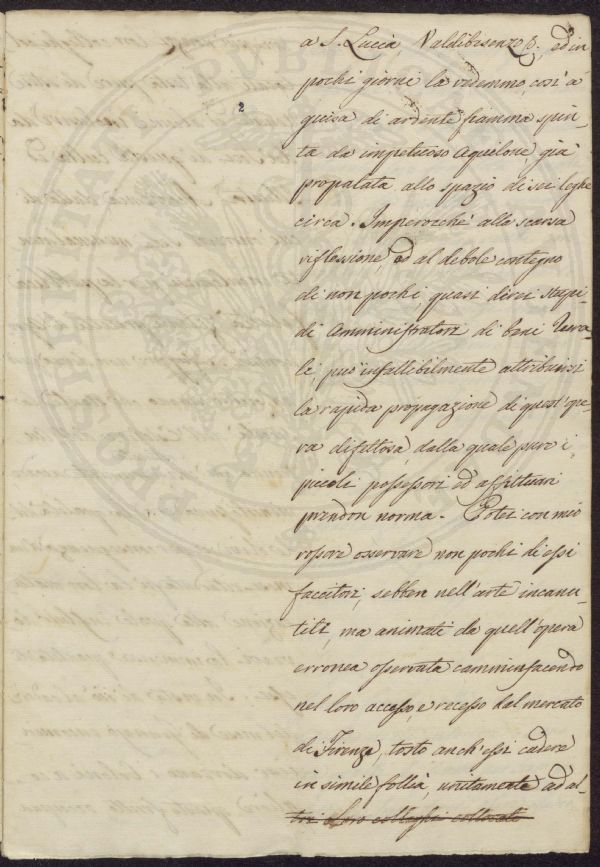 2
a S. Lucia, Valdibisenzo &., ed in
pochi giorni la vedemmo, cosi' a
guisa di ardente fiamma spin-
ta da impetuoso Aquilone, già
propalata allo spazio di sei leghe
circa. Imperocche' alla scarsa
riflessione, ed al debole contegno
di non pochi, quasi direi stupi-
di Amministratori di beni Rura-
li può infallibilmente attribuirsi
la rapida propagazione di quest'ope-
ra difettosa, dalla quale pure i
piccoli possessori ed affittuari
prendon norma. Potei con mio
rossore osservare non pochi di essi
faccitori, sebben nell'arte incanu-
titi, ma animati da quell'opera
erronea osservata cammin facendo
nel loro accesso, e recesso dal mercato
di Firenze, tosto anch'essi cadere
in simile follia, unitamente ad al-
tri loro colleghi